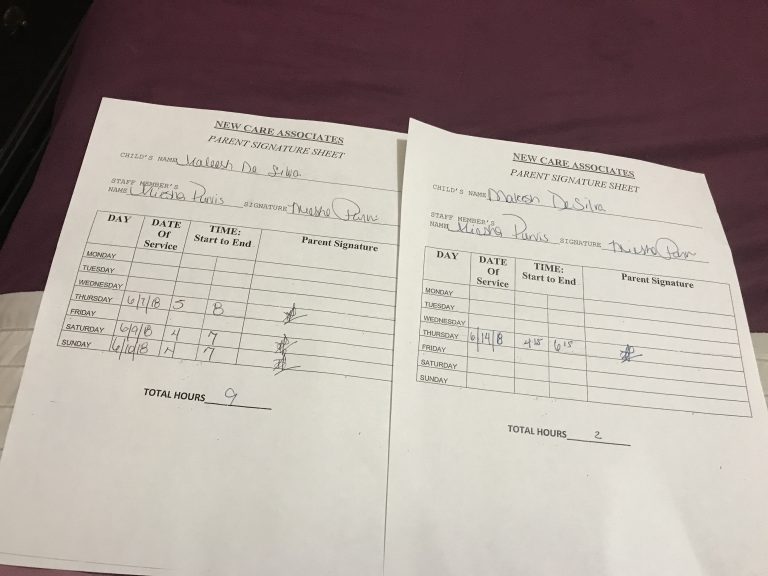 NEW CARE ASSOCIATES
PARENT SIGNATURE SHEET
CHILD'S NAME Maleesh De Silva
STAFF MEMBER'S
NAME Miesha Purvis SIGNATURE
DAY DATE Of Service TIME: Start to End Parent Signature
MONDAY
TUESDAY
WEDNESDAY
THURSDAY 6/7/18 5 8
FRIDAY
SATURDAY 6/9/18 4 7
SUNDAY 6/10/18 4 7
TOTAL HOURS 9
NEW CARE ASSOCIATES
PARENT SIGNATURE SHEET
CHILD'S NAME Makesh DeSilva
STAFF MEMBER'S
NAME Miesha Purvis SIGNATURE
DAY DATE Of Service TIME: Start to End Parent Signature
MONDAY
TUESDAY
WEDNESDAY
THURSDAY 6/14/18 4:15 6:15
FRIDAY
SATURDAY
SUNDAY
TOTAL HOURS 2